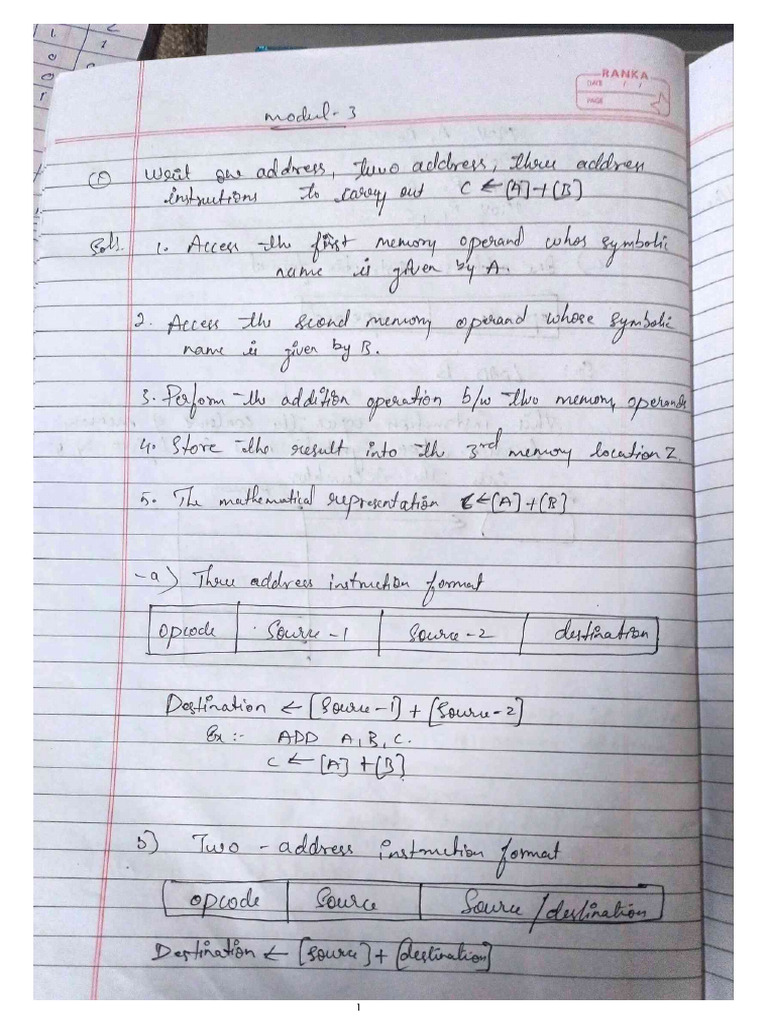 RANKA
DATE / /
PAGE
Modul-3
Writ one address, Two address, three address
instructions to carry out C ← [A]+[B]
Soln. 1. Access the first memory operand whos symbolic
name is given by A.
2. Access the second memory operand whose symbolic
name is given by B.
3. Perform the addition operation b/w two memory operands
4. Store the result into the 3rd memory location Z.
5. The mathematical representation C←[A]+[B]
a) Three address instruction format
opcode Source-1 Source-2 destination
Destination ← [Source-1] + [Source-2]
Ex :- ADD A, B, C.
C ← [A] + [B]
b) Two-address instruction format
opcode Source Source/destination
Destination ← [source] + [destination]
1